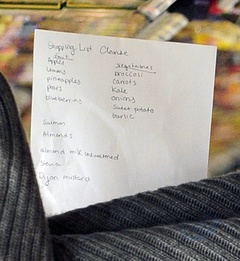 Shopping List Cleanse
fruit
Apples
lemons
pineapples
pears
blueberries
vegetables
broccoli
carrots
Kale
onions
sweet potato
garlic
Salmon
Almonds
almond milk unsweetened
Dijon mustard